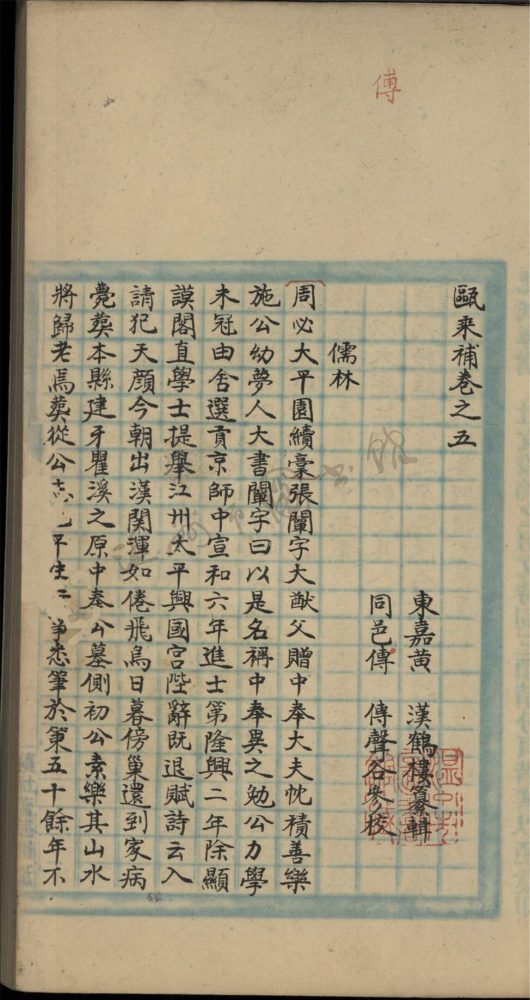 傅
甌乘補卷之五
東嘉黃 漢鶴樓纂輯
同邑傅 傅聲谷參校
儒林
周必大平園續稾張闡字大猷父贈中奉大夫忱積善樂
施公幼夢人大書闡字曰以是名稱中奉異之勉公力學
未冠由舍選貢京師中宣和六年進士第隆興二年除顯
謨閣直學士提舉江州太平興國宮陛辭既退賦詩云入
請犯天顏今朝出漢関渾如倦飛鳥日暮傍巢還到家病
薨葬本縣建牙瞿溪之原中奉公墓側初公素樂其山水
將歸老焉葬從公志也平生二 事悉筆於第五十餘年不